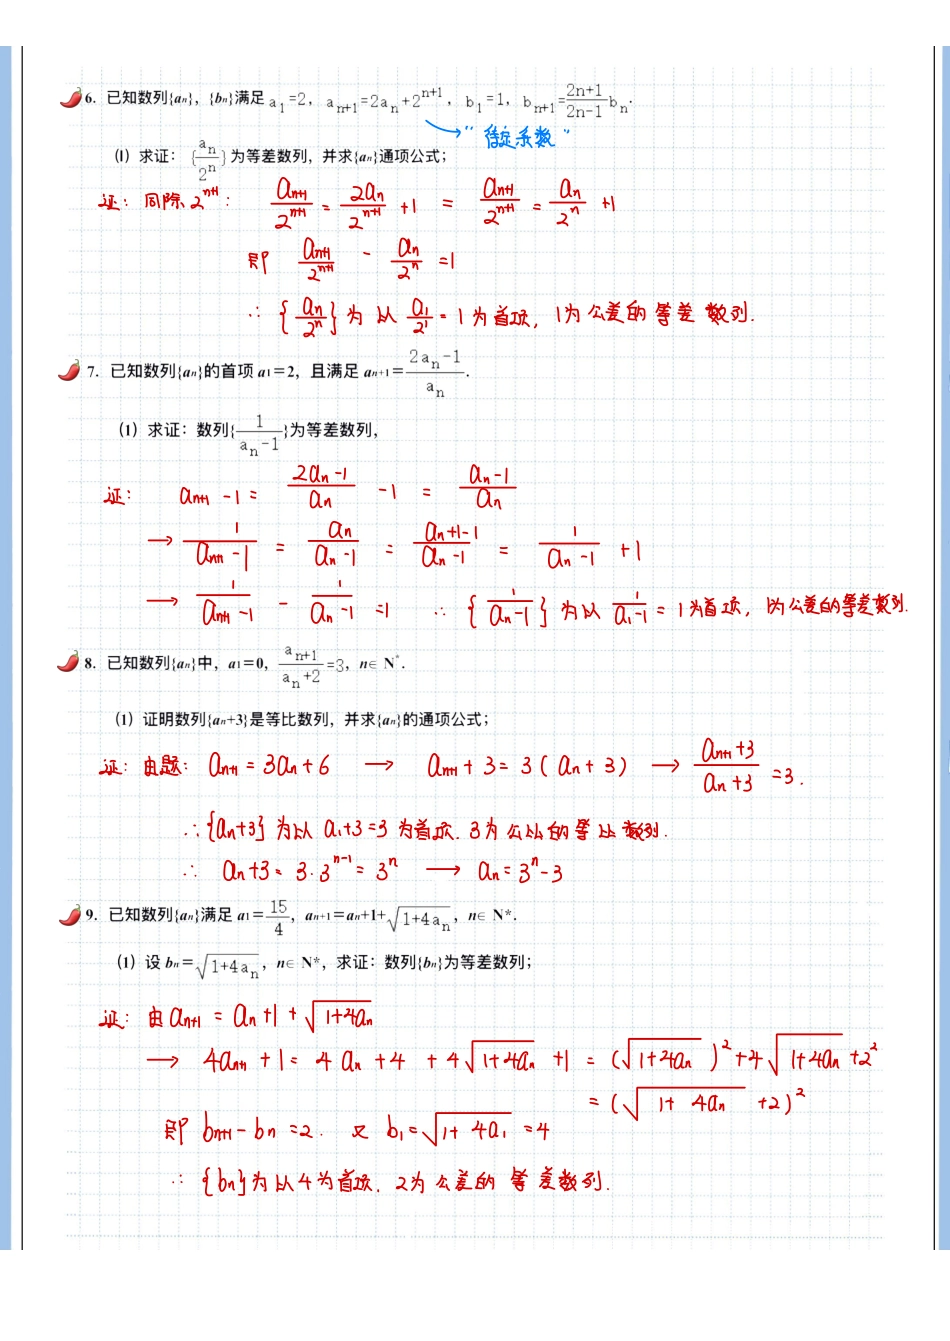 6. 已知数列{an}，{bn}满足 a₁=2，aₙ₊₁=2aₙ+2ⁿ⁺¹，b₁=1，bₙ₊₁=(2n+1)/(2n-1) bₙ.
→ "待定系数"
(Ⅰ) 求证：{aₙ/2ⁿ}为等差数列，并求{an}通项公式；
证：同除 2ⁿ⁺¹：aₙ₊₁/2ⁿ⁺¹ = 2aₙ/2ⁿ⁺¹ +1 = aₙ₊₁/2ⁿ⁺¹ = aₙ/2ⁿ +1
即 aₙ₊₁/2ⁿ⁺¹ - aₙ/2ⁿ =1
∴ {aₙ/2ⁿ} 为以 a₁/2¹ = 1 为首项，1为公差的等差数列.
7. 已知数列{an}的首项 a1=2，且满足 an+1=(2aₙ-1)/aₙ.
(1) 求证：数列{1/(aₙ-1)}为等差数列，
证： aₙ₊₁ -1 = (2aₙ-1)/aₙ -1 = (aₙ-1)/aₙ
→ 1/(aₙ₊₁ -1) = aₙ/(aₙ -1) = (aₙ+1-1)/(aₙ -1) = 1/(aₙ -1) +1
→ 1/(aₙ₊₁ -1) - 1/(aₙ -1) =1 ∴ {1/(aₙ-1)} 为以 1/(a₁-1) = 1为首项，1为公差的等差数列.
8. 已知数列{an}中，a1=0，aₙ₊₁/(aₙ+2)=3，n∈N*.
(1) 证明数列{an+3}是等比数列，并求{an}的通项公式；
证：由题：aₙ₊₁ = 3aₙ+6 → aₙ₊₁ + 3 = 3(aₙ+3) → (aₙ₊₁+3)/(aₙ+3) =3.
∴ {aₙ+3} 为以 a₁+3=3 为首项.3为公比的等比数列.
∴ aₙ+3 = 3·3ⁿ⁻¹ = 3ⁿ → aₙ = 3ⁿ-3
9. 已知数列{an}满足 a1=15/4，an+1=an+1+√(1+4aₙ)，n∈N*.
(1) 设 bn=√(1+4aₙ)，n∈N*，求证：数列{bn}为等差数列；
证：由 aₙ₊₁ = aₙ+1+√(1+4aₙ)
→ 4aₙ₊₁ +1 = 4aₙ +4 +4√(1+4aₙ) +1 = (√(1+4aₙ))²+4√(1+4aₙ)+2²
= (√(1+4aₙ) +2)²
即 bₙ₊₁ - bₙ =2. 又 b₁=√(1+4a₁) =4
∴ {bₙ}为以4为首项.2为公差的等差数列.